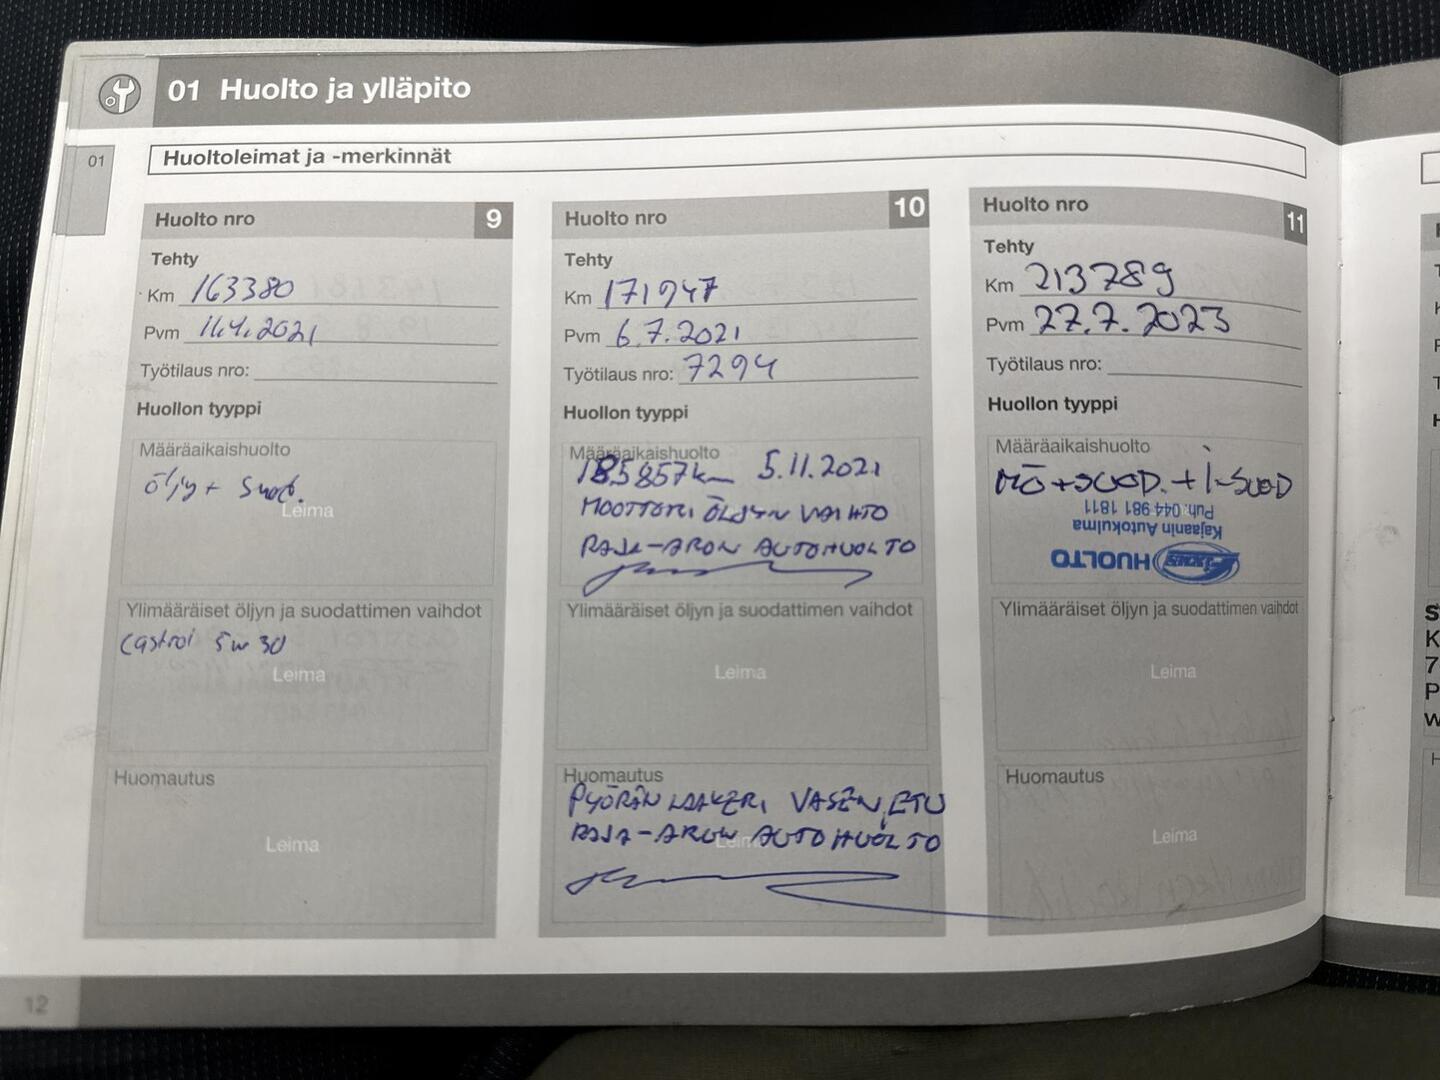 01 Huolto ja ylläpito
01
Huoltoleimat ja -merkinnät
Huolto nro 9
Tehty
Km 163380
Pvm 11.4.2021
Työtilaus nro:
Huollon tyyppi
Määräaikaishuolto
öljy + suod.
Leima
Ylimääräiset öljyn ja suodattimen vaihdot
Castrol 5w30
Leima
Huomautus
Leima
Huolto nro 10
Tehty
Km 171947
Pvm 6.7.2021
Työtilaus nro: 7294
Huollon tyyppi
Määräaikaishuolto
185857km 5.11.2021
MOOTTORI ÖLJYN VAIHTO
RAJA-ARON AUTOHUOLTO
Ylimääräiset öljyn ja suodattimen vaihdot
Leima
Huomautus
PYÖRÄN LAAKERI VASEN, ETU
RAJA-ARON AUTOHUOLTO
Leima
Huolto nro 11
Tehty
Km 213789
Pvm 27.7.2023
Työtilaus nro:
Huollon tyyppi
Määräaikaishuolto
MÖ+SUOD.+i-SUOD
Puh. 044 981 1811
Kajaanin Autokulma
HUOLTO
Ylimääräiset öljyn ja suodattimen vaihdot
Leima
Huomautus
Leima
12